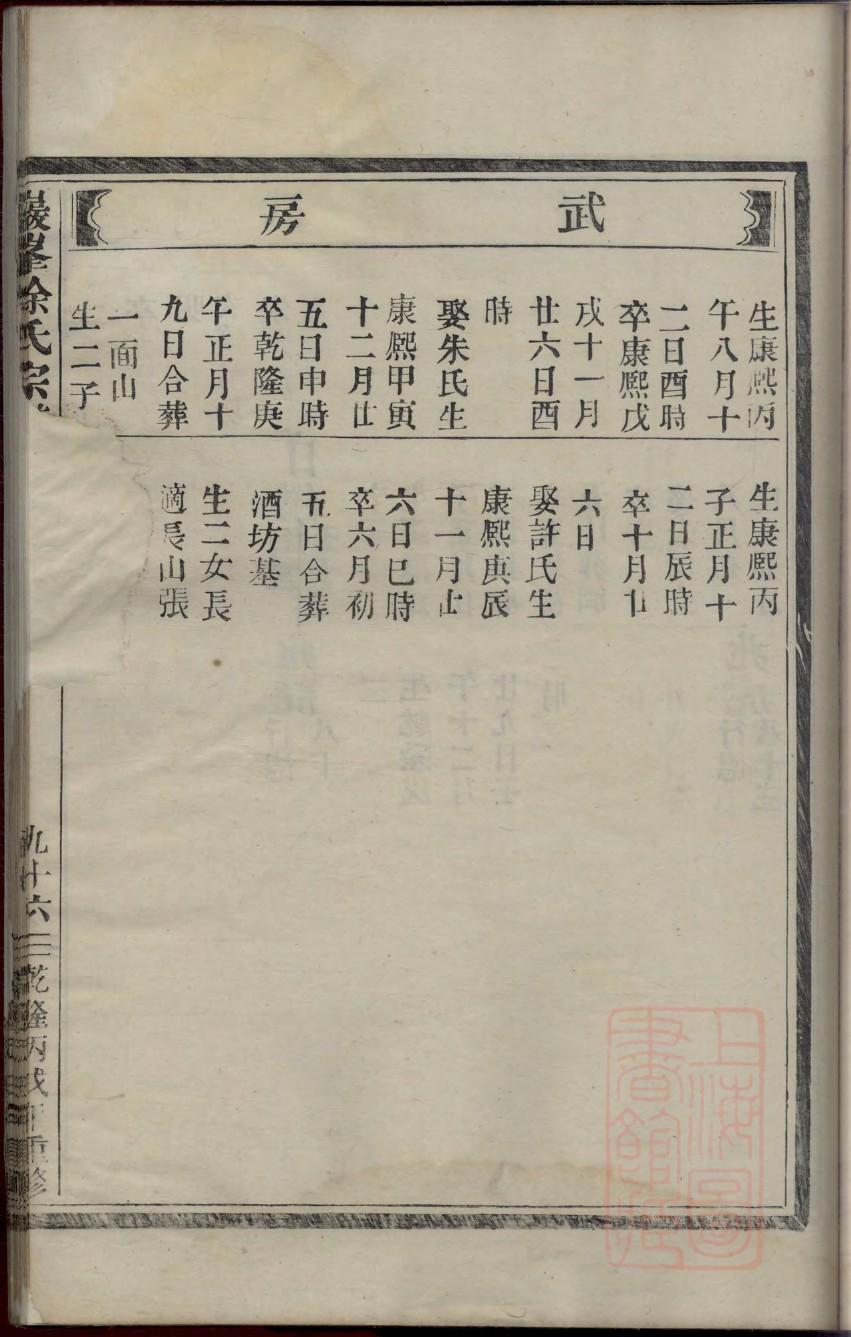 武房
生康熈丙
午八月十
二日酉時
卒康熈戊
戌十一月
廿六日酉
時
娶朱氏生
康熈甲寅
十二月廿
五日申時
卒乾隆庚
午正月十
九日合葬
一面山
生二子
生康熈丙
子正月十
二日辰時
卒十月廿
六日
娶許氏生
康熈庚辰
十一月廿
六日巳時
卒六月初
五日合葬
酒坊基
生二女長
適長山張
巖峯徐氏宗
九十六 乾隆丙戌年重修
上海圖書館藏